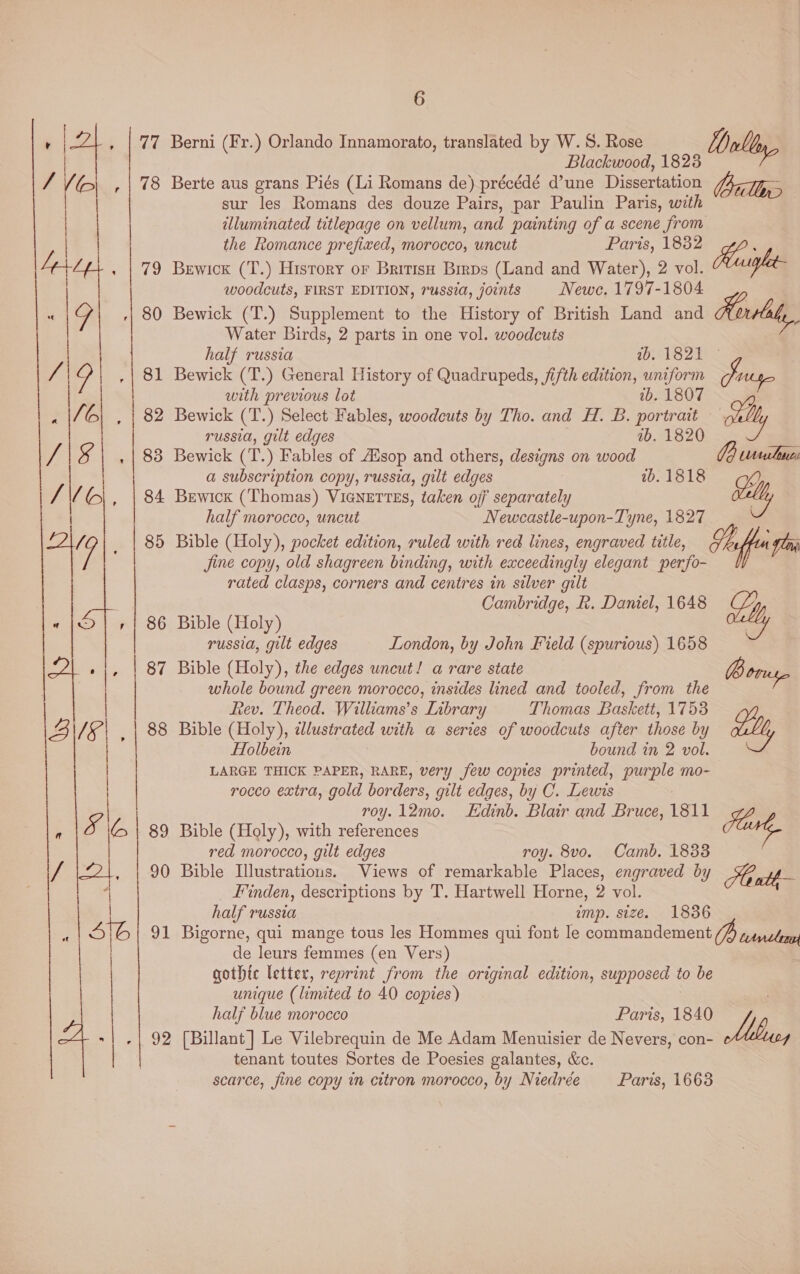 6
77 Berni (Fr.) Orlando Innamorato, translated by W. S. Rose
Blackwood, 1823
78 Berte aus grans Piés (Li Romans de) précédé d'une Dissertation
sur les Romans des douze Pairs, par Paulin Paris, with
illuminated titlepage on vellum, and painting of a scene from
the Romance prefixed, morocco, uncut Paris, 1832
79 BEWICK (T.) HISTORY OF BRITISH BIRDS (Land and Water), 2 vol. Knight
woodcuts, FIRST EDITION, russia, joints Newc. 1797-1804
80 Bewick (T.) Supplement to the History of British Land and
Water Birds, 2 parts in one vol. woodcuts
half russia ib. 1821
81 Bewick (T.) General History of Quadrupeds, fifth edition, uniform
with previous lot ib. 1807
82 Bewick (T.) Select Fables, woodcuts by Tho. and H. B. portrait Lilly
russia, gilt edges ib. 1820
83 Bewick (T.) Fables of Æsop and others, designs on wood
a subscription copy, russia, gilt edges ib. 1818
84 BEWICK (Thomas) VIGNETTES, taken off separately Lilly
half morocco, uncut Newcastle-upon-Tyne, 1827
85 Bible (Holy), pocket edition, ruled with red lines, engraved title,
fine copy, old shagreen binding, with exceedingly elegant perfo-
rated clasps, corners and centres in silver gilt
Cambridge, R. Daniel, 1648
86 Bible (Holy) Lilly
russia, gilt edges London, by John Field (spurious) 1658
87 Bible (Holy), the edges uncut! a rare state
whole bound green morocco, insides lined and tooled, from the
Rev. Theod. Williams's Library Thomas Baskett, 1753
88 Bible (Holy), illustrated with a series of woodcuts after those by Lilly
Holbein bound in 2 vol.
LARGE THICK PAPER, RARE, very few copies printed, purple mo-
rocco extra, gold borders, gilt edges, by C. Lewis
roy. 12mo. Edinb. Blair and Bruce, 1811
89 Bible (Holy), with references
red morocco, gilt edges roy. 8vo. Camb. 1833
90 Bible Illustrations. Views of remarkable Places, engraved by Heath
Finden, descriptions by T. Hartwell Horne, 2 vol.
half russia imp. size. 1836
91 Bigorne, qui mange tous les Hommes qui font le commandement
de leurs femmes (en Vers)
gothic letter, reprint from the original edition, supposed to be
unique (limited to 40 copies)
half blue morocco Paris, 1840
92 [Billant] Le Vilebrequin de Me Adam Menuisier de Nevers, con-
tenant toutes Sortes de Poesies galantes, &c.
scarce, fine copy in citron morocco, by Niedrée Paris, 1663